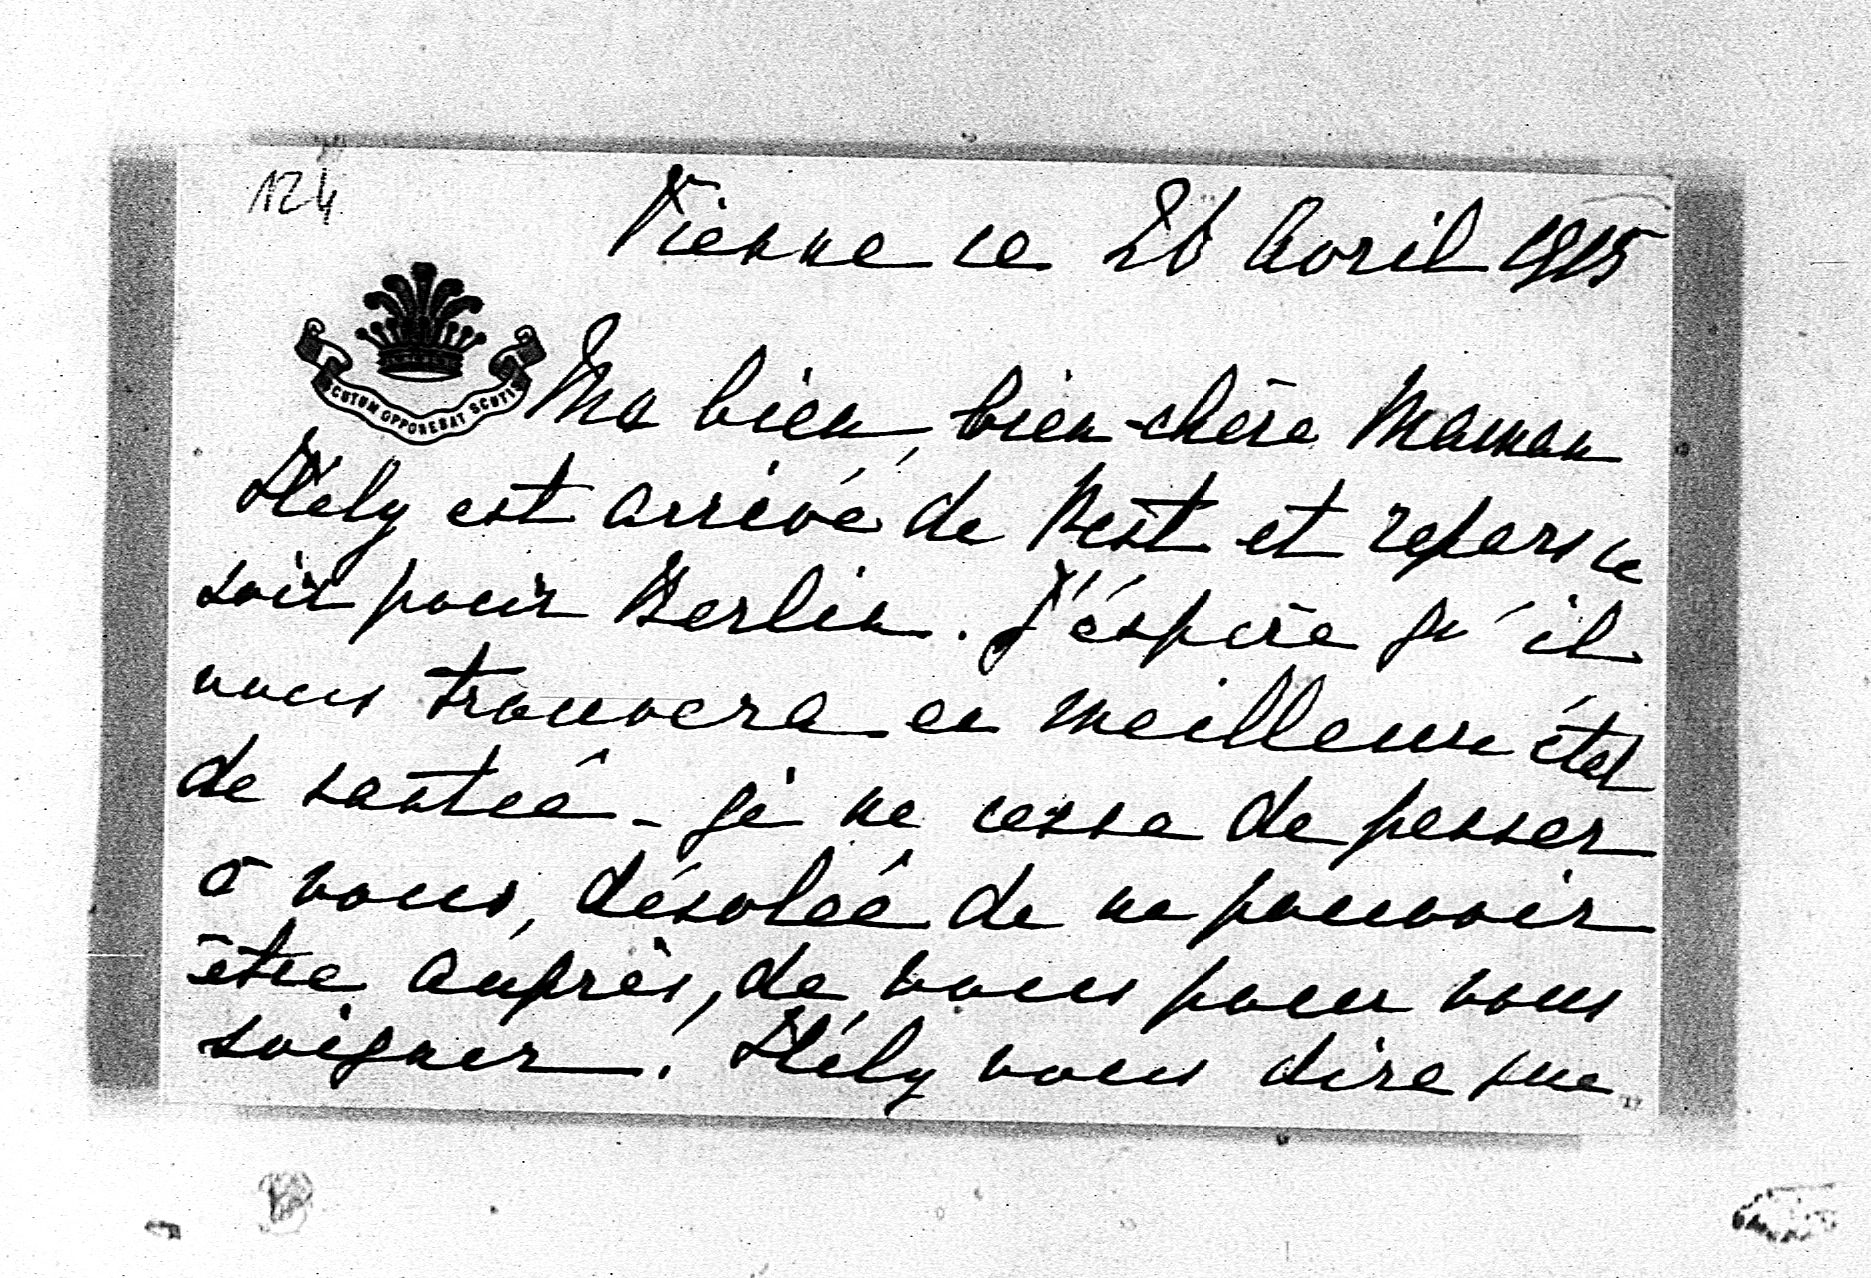 124
Vienne ce 26 Avril 1915
SCUTUM OPPONEBAT SCUTIS
Ma bien, bien chère Maman
Hély est arrivé de Pest et repars ce
soir pour Berlin. J'éspère qu'il
vous trouvera en meilleure état
de santeé - je ne cesse de penser
à vous, désoleé de ne pouvoir
être auprès, de vous pour vous
soigner. Hély vous dira que